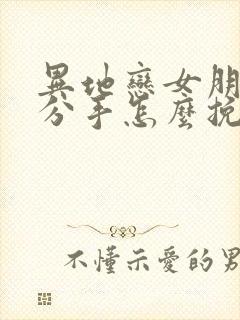 異地戀女朋
分手怎麼挽
不懂示愛的男